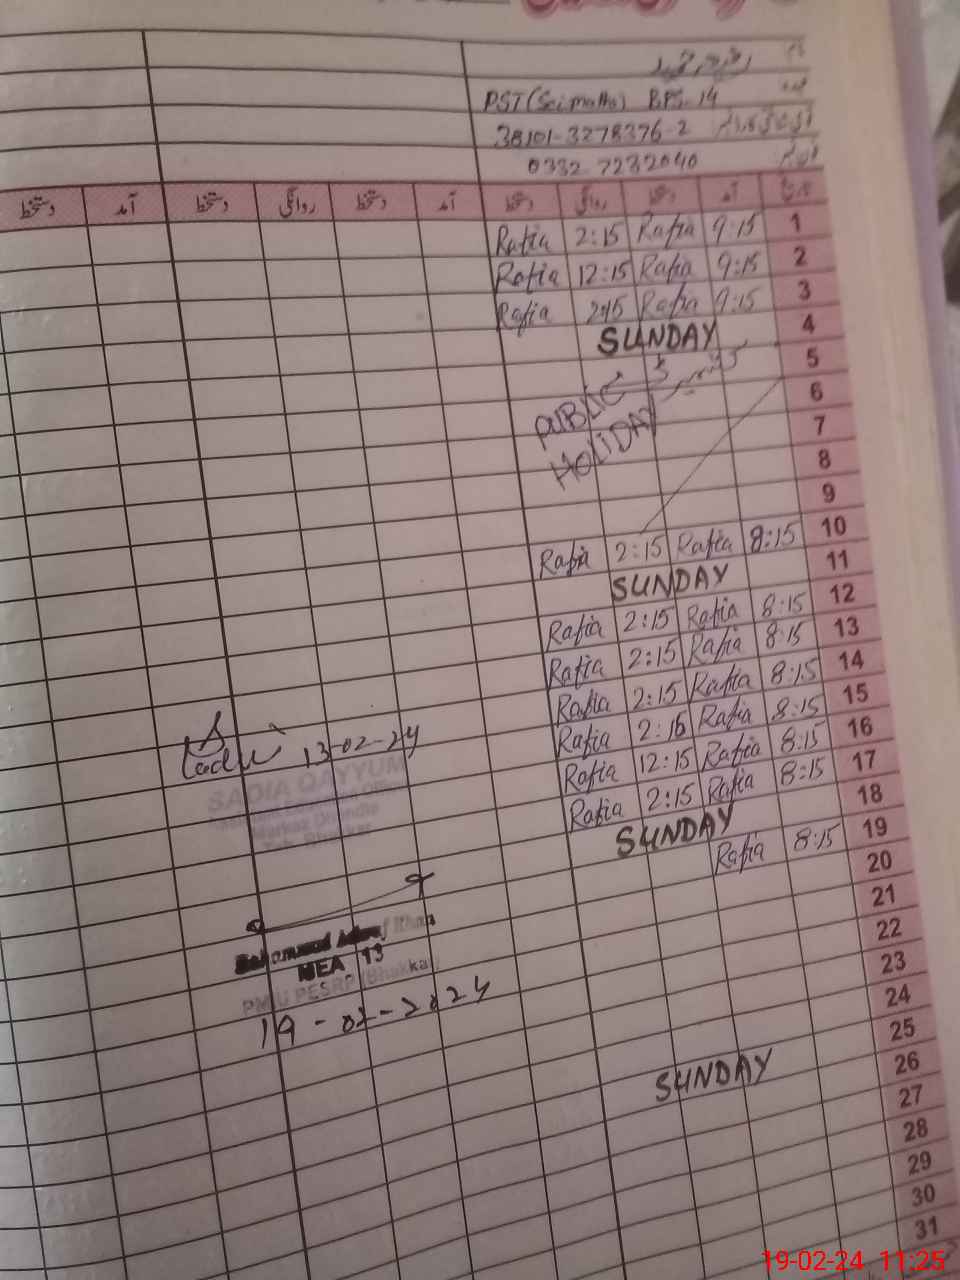 نام
PST (Sci maths) BPS-14
عہدہ
38101-3278376-2
شناختی کارڈ نمبر
0332-7232040
فون نمبر
دستخط آمد دستخط روانگی دستخط آمد دستخط روانگی دستخط آمد تاریخ
Rafia 2:15 Rafia 9:15 1
Rafia 12:15 Rafia 9:15 2
Rafia 2:15 Rafia 9:15 3
SUNDAY 4
5
PUBLIC HOLIDAY
کشمیر ڈے
6
7
8
9
Rafia 2:15 Rafia 8:15 10
SUNDAY 11
Rafia 2:15 Rafia 8:15 12
Rafia 2:15 Rafia 8:15 13
Rafia 2:15 Rafia 8:15 14
Rafia 2:15 Rafia 8:15 15
Rafia 12:15 Rafia 8:15 16
Rafia 2:15 Rafia 8:15 17
SUNDAY 18
Rafia 8:15 19
20
21
22
23
24
SUNDAY 25
26
27
28
29
30
31
13-02-24
SADIA QAYYUM
Markaz Dhandla
Teh. Bhakkar
Khan
MEA. 13
PMIU PESRP (Bhakkar)
19-02-2024
19-02-24 11:25